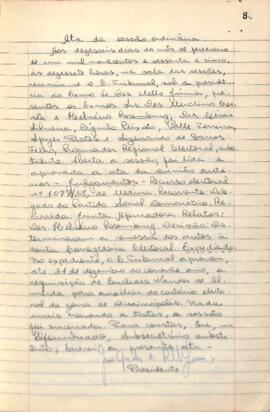 8
Ata da sessão ordinária
Aos dezesseis dias do mês de fevereiro
de um mil novecentos e sessenta e cinco,
às dezessete horas, na sala das sessões,
reuniu-se o E. Tribunal, sob a presidên-
cia do Exmo Sr. Des. Mello Júnior, pre-
sentes os Exmos. Srs. Des. Merolino Cor-
rêa e Helvécio Rosenburg, Drs. César
Silveira, Régulo Peixoto, Valle Ferreira,
Ayer Prates e de Barros
Felix, Procurador Regional Eleitoral, subs-
tituto. Aberta a sessão, foi lida e
aprovada a ata da reunião ante-
rior. Julgamentos - Recurso eleitoral
nº de Medina. Recorrente: Dele-
gado do Partido Social Democrático. Re-
corrida: Junta Apuradora. Relator:
Des. Helvécio Rosenburg. Decisão: De-
terminaram a remessa dos autos à
douta Corregedoria Eleitoral. Expediente.
No expediente, o E. Tribunal aprovou,
até 31 de dezembro do corrente ano, a
requisição de Euclides Wander de Al-
meida para auxiliar do cartório eleito-
ral da zona de Divinópolis. Na da
mais havendo a tratar, a sessão
foi encerrada. Para constar, Eu,
subsecretário substi-
tuto, lavrei a presente ata.
Presidente